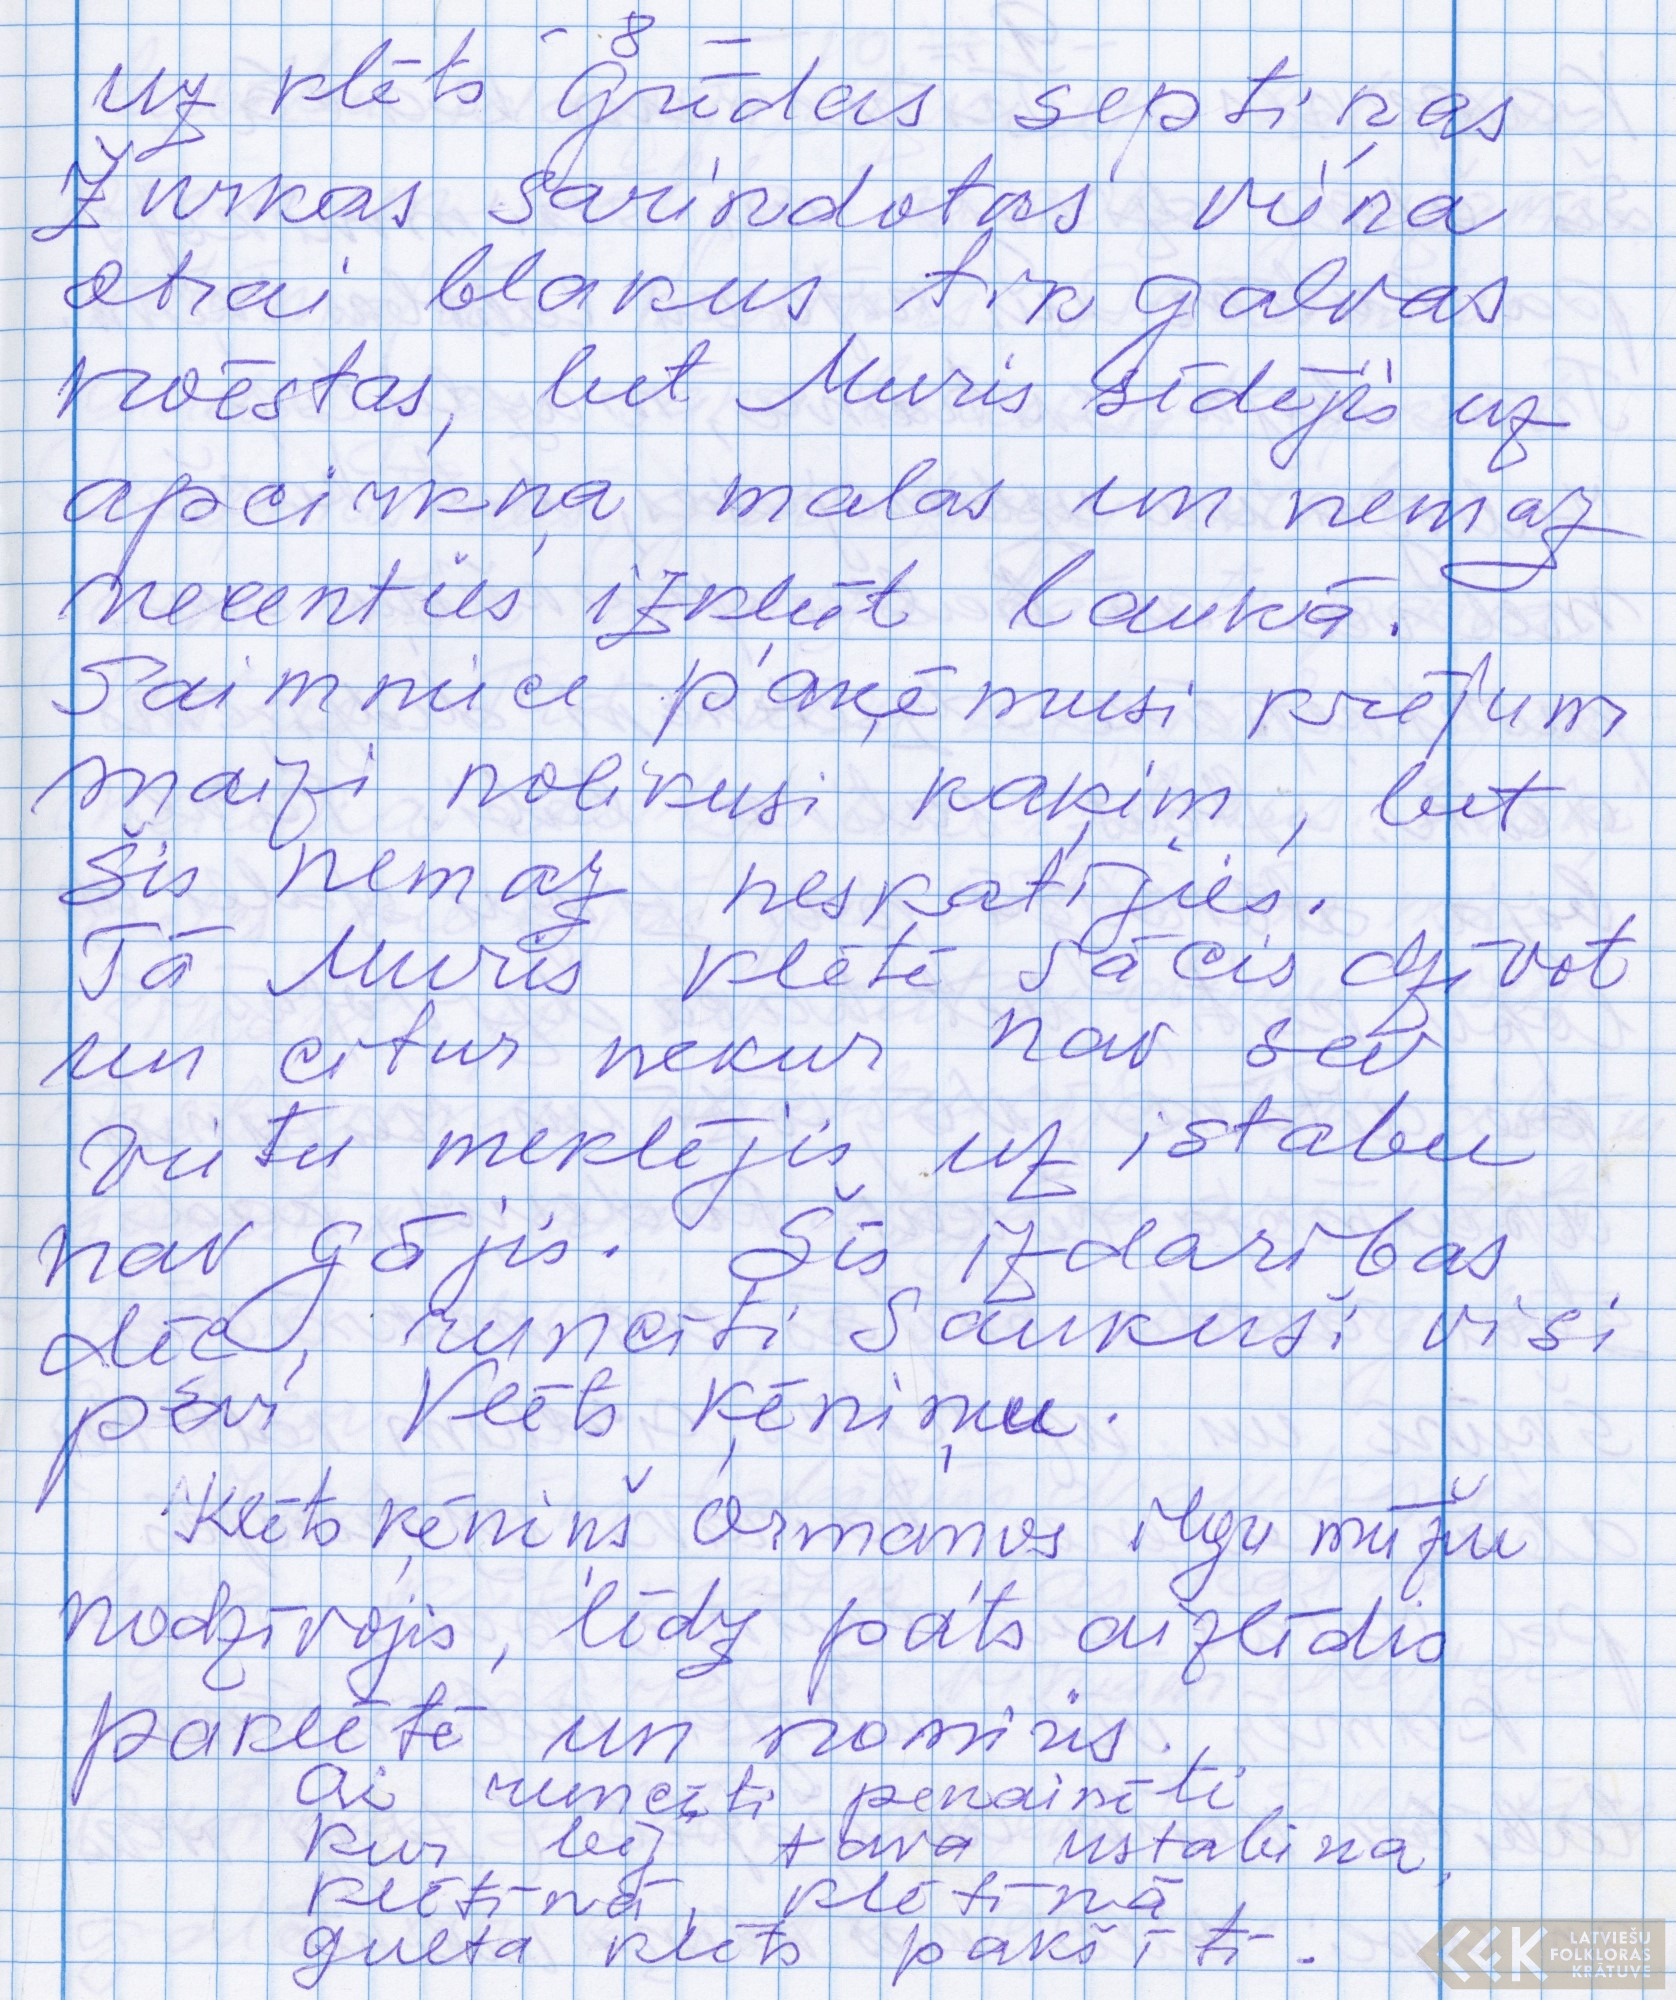 8
uz klēts grīdas septiņas
Žurkas sarindotas viena
otrai blakus tik galvas
noēstas, bet Muris sīdējis uz
apcirkņa malas un nemaz
necenties izkļūt laukā.
Saimniece paņēmusi krējum
maizi nolikusi kaķim, bet
šis nemaz neskatījies.
Tā Muris klētē sācis dzīvot
un citur nekur nav sev
vietu meklējis uz istabu
nav gājis. Šīs izdarības
dēļ, runcīti saukuši visi
par Klēts ķēniņu.
Klēts ķēniņš Ormaņos ilgu mūžu
nodzīvojis, līdz pats aizlīdis
paklētē un nomiris.
Ai runcīti penainīti
kur bij tava ustabiņa,
klētiņā, klētiņā,
gulta klēts pakšītī.
LATVIEŠU
FOLKLORAS
KRĀTUVE